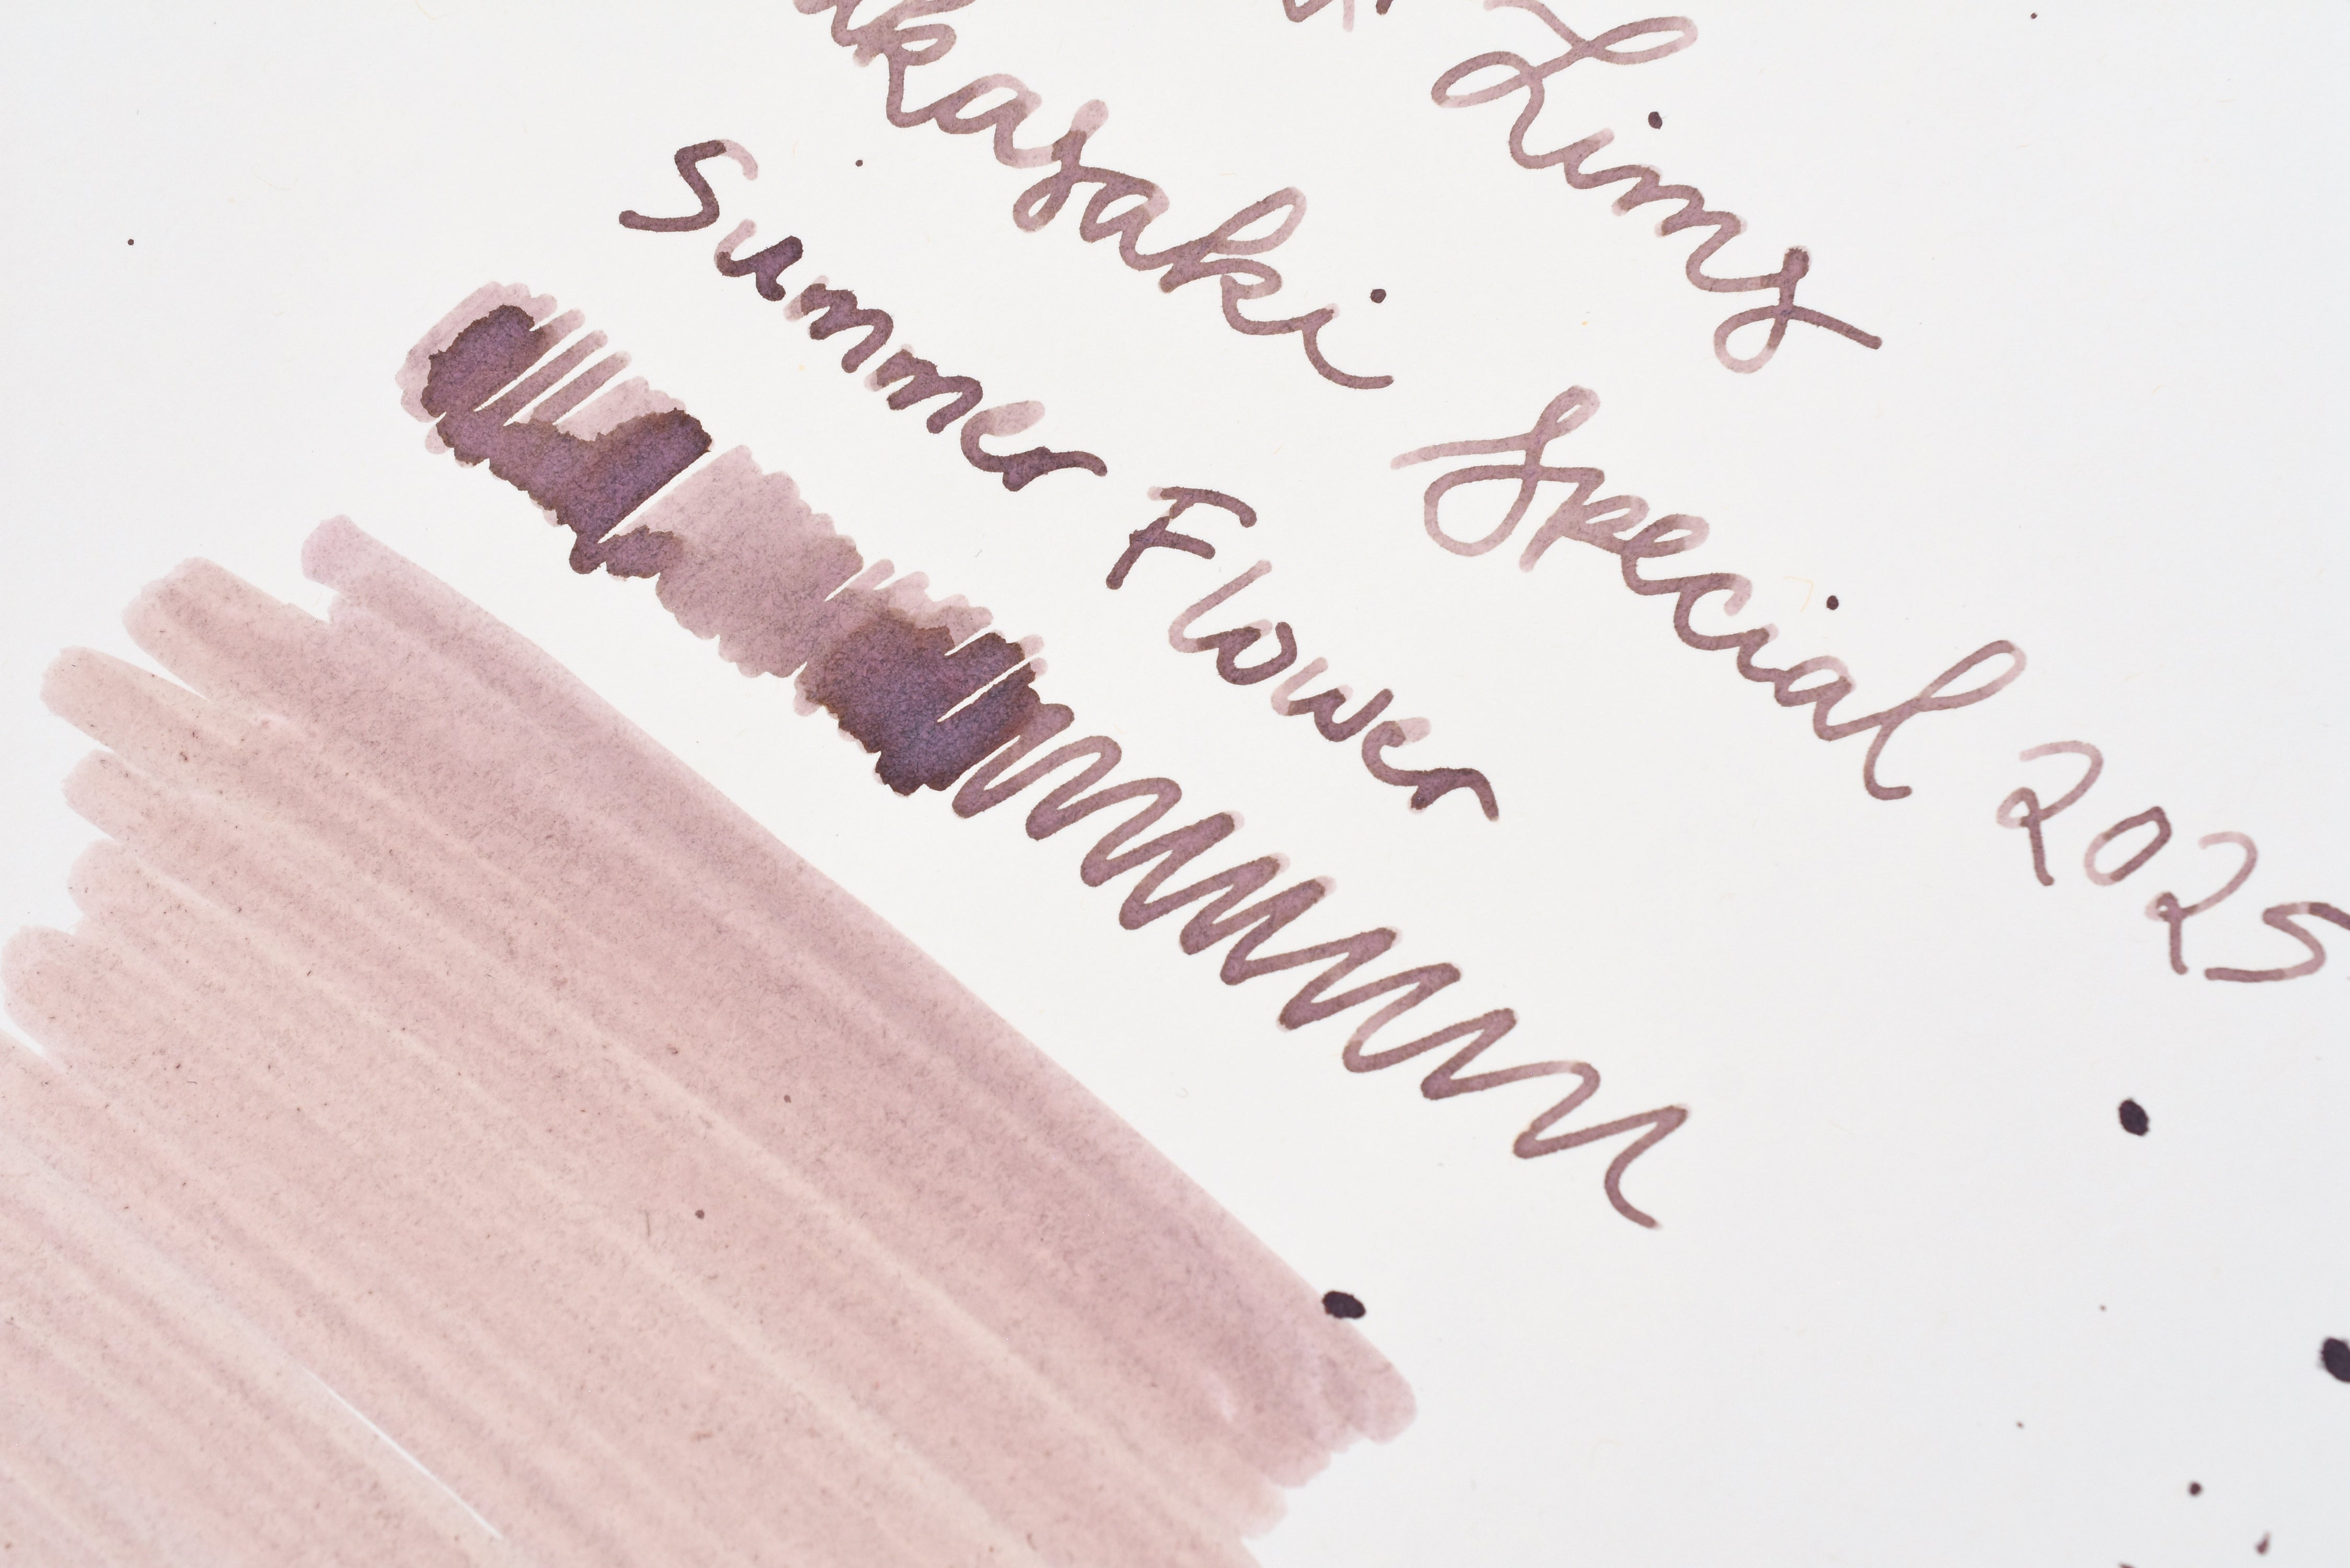 akasaki Special 2025
Summer Flower